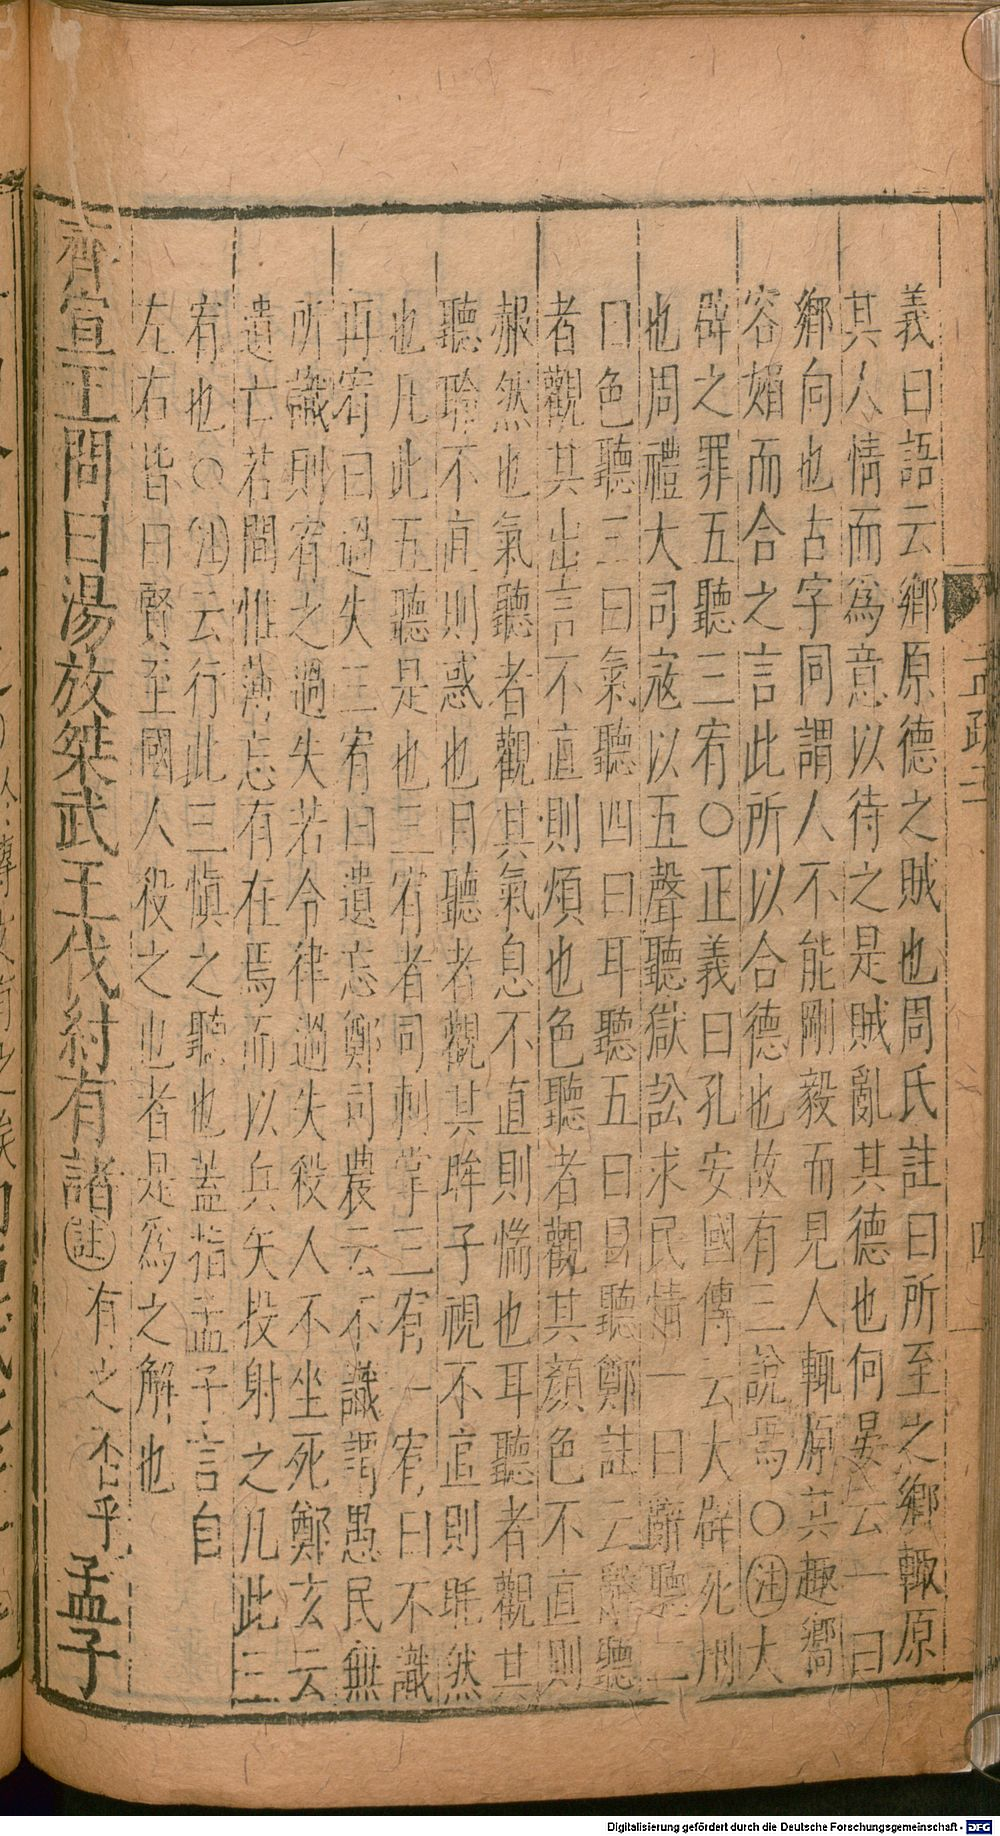 義曰語云鄉原德之賊也周氏註曰所至之鄉輒原
其人情而爲意以待之是賊亂其德也何晏云一曰
鄉向也古字同謂人不能剛毅而見人輒原其趣嚮
容媚而合之言此所以合德也故有三說焉○注大
辟之罪五聽三宥○正義曰孔安國傳云大辟死刑
也周禮大司寇以五聲聽獄訟求民情一曰辭聽二
曰色聽三曰氣聽四曰耳聽五曰目聽鄭註云辭聽
者觀其出言不直則煩也色聽者觀其顏色不直則
赧然也氣聽者觀其氣息不直則惴也耳聽者觀其
聽聆不直則惑也目聽者觀其眸子視不直則眊然
也凡此五聽是也三宥者同刺掌三宥一宥曰不識
再宥曰過失三宥曰遺忘鄭司農云不識謂愚民無
所識則宥之過失若令律過失殺人不坐死鄭玄云
遺亡若間惟薄忘有在焉而以兵矢投射之凡此三
宥也○注云行此三愼之聽也蓋指孟子言自
左右皆曰賢至國人殺之也者是爲之解也
齊宣王問曰湯放桀武王伐紂有諸註有之否乎孟子
孟疏二
四
Digitalisierung gefördert durch die Deutsche Forschungsgemeinschaft - DFG